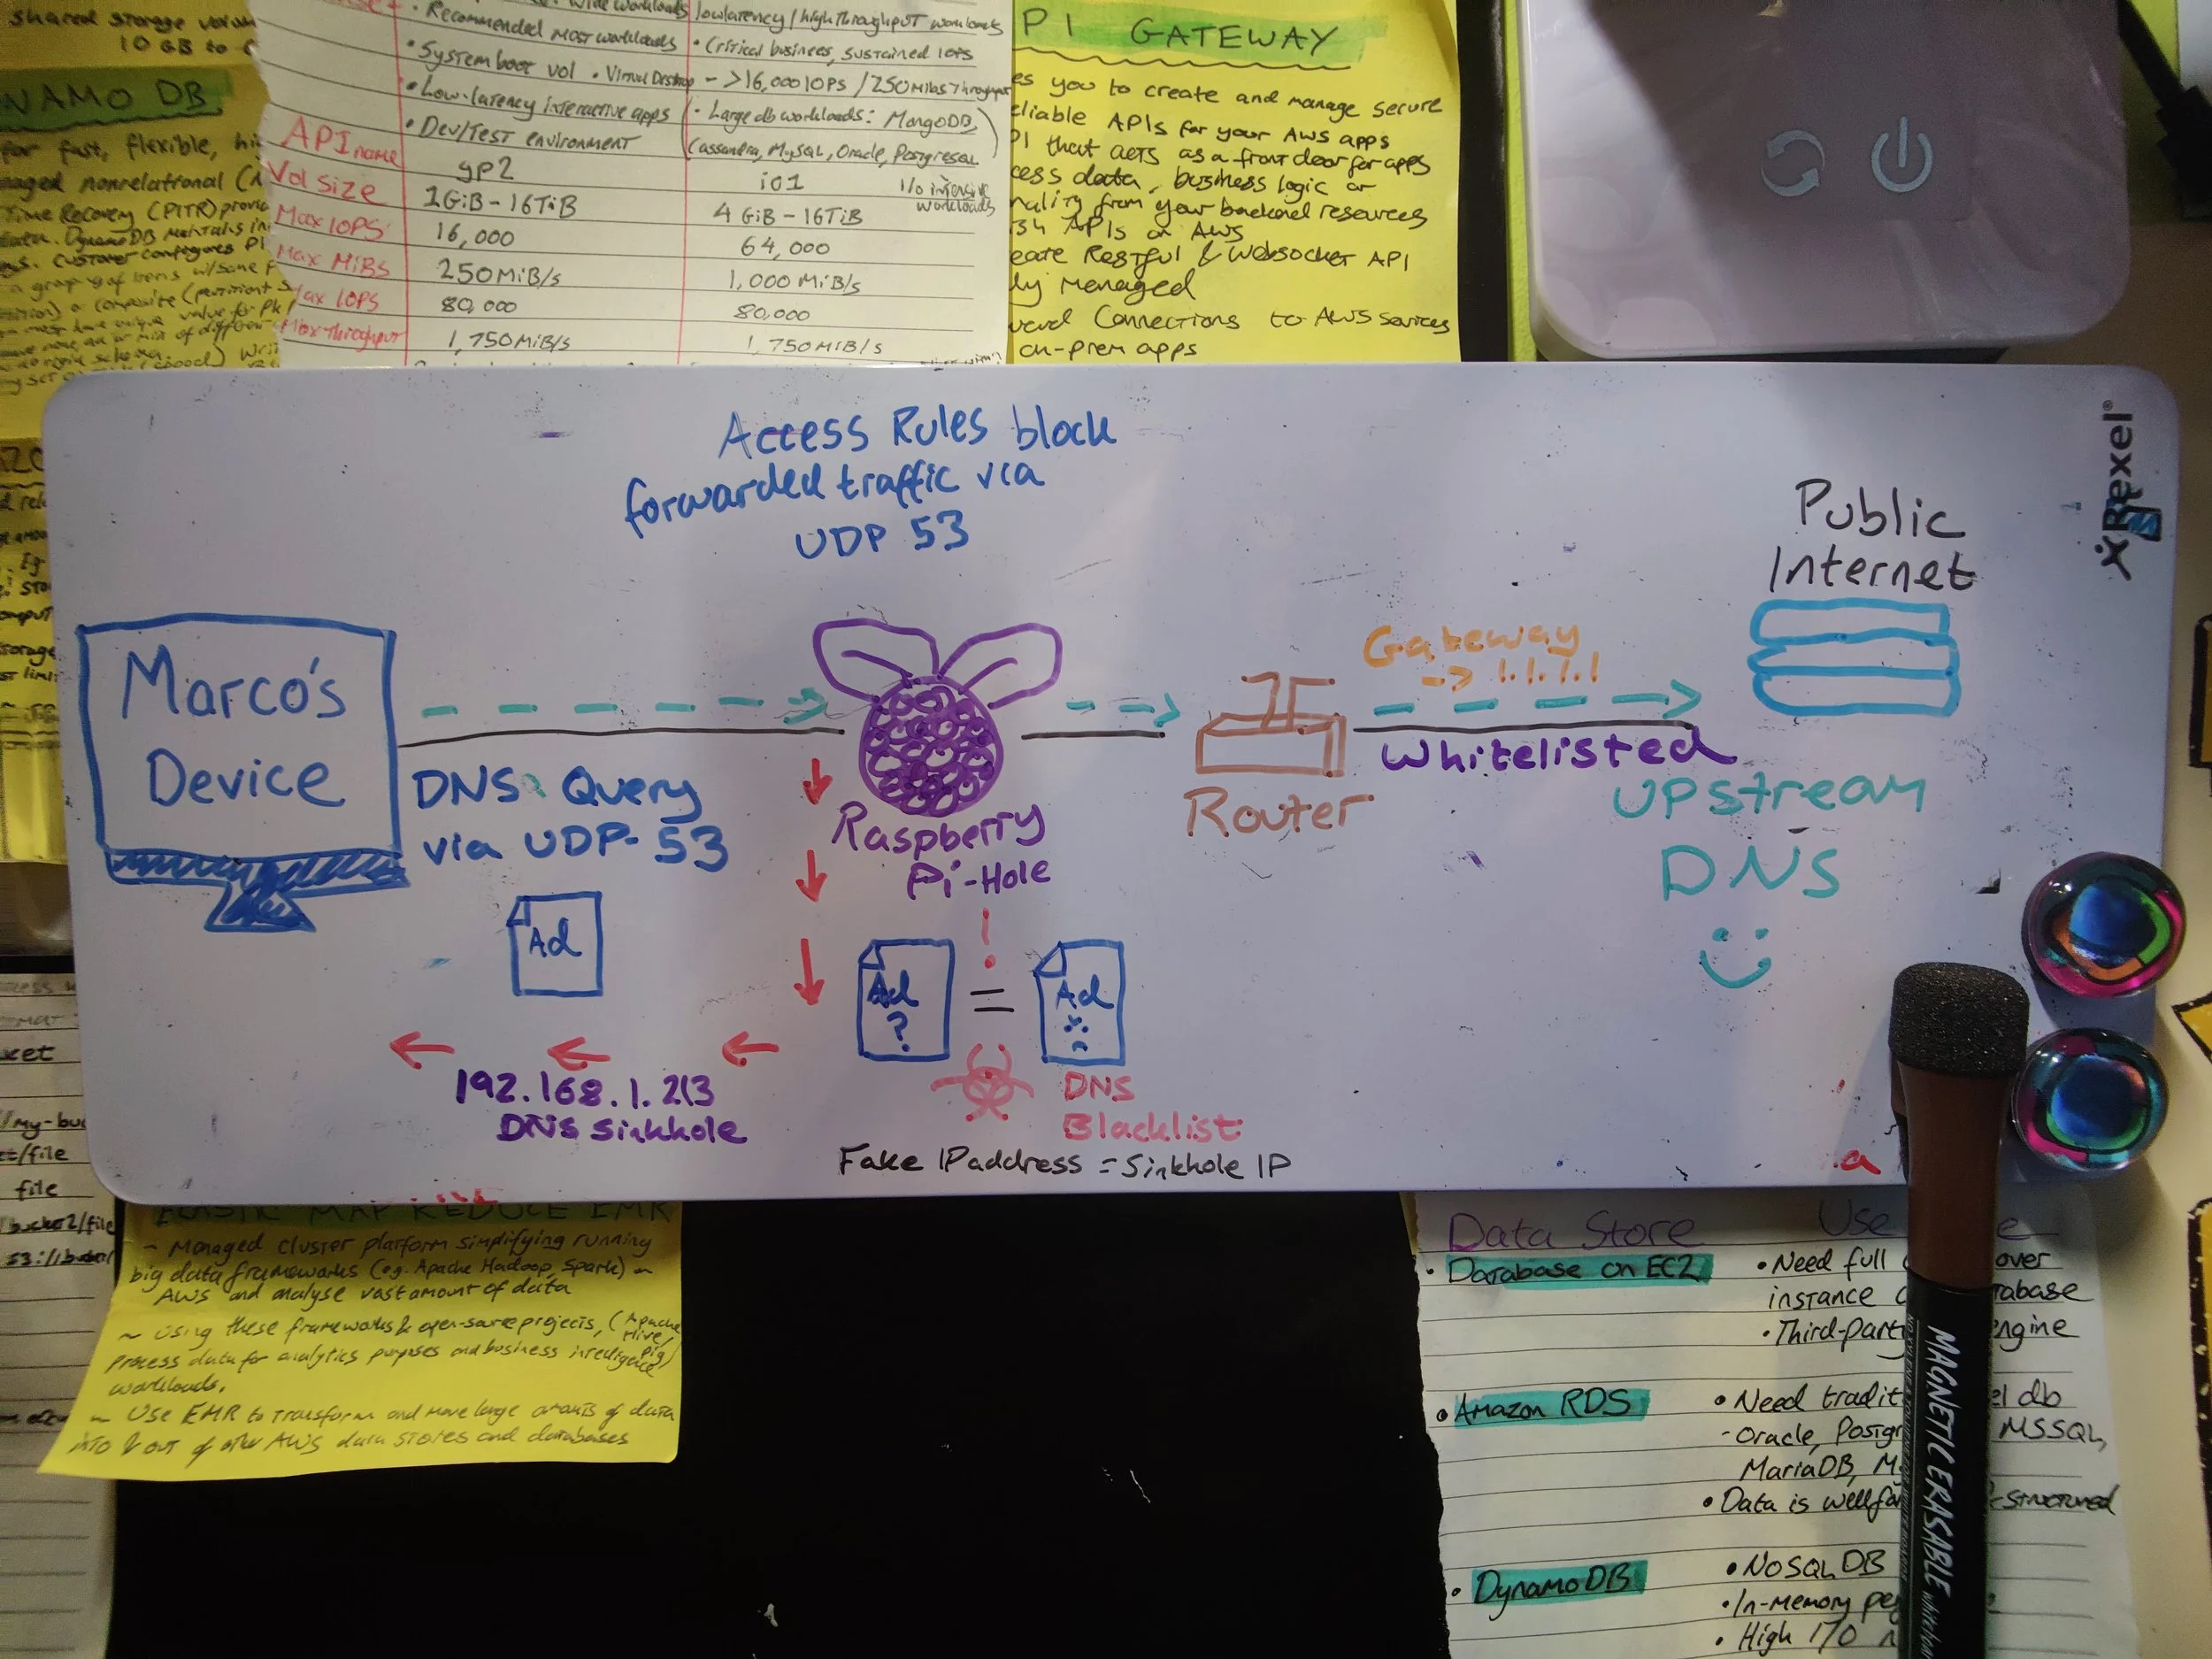 shared storage
10 GB to
NAMO DB
for fast, flexible,
naged nonrelational
Time Recovery (PITR)
Customer configures
• Recommended most workloads
• System boot vol • Virtual Desktop
• Low-latency interactive apps
• Dev/Test environment
low latency / high throughput workloads
• Critical business, sustained IOPS
- >16,000 IOPS / 250 MiBs Throughput
• Large db workloads: MongoDB,
Cassandra, MySQL, Oracle, Postgresql
API name gp2 io1 I/O intensive workloads
Vol Size 1GiB - 16TiB 4 GiB - 16TiB
Max IOPS 16,000 64,000
Max MiBS 250MiB/s 1,000 MiB/s
Max IOPS 80,000 80,000
Max Throughput 1,750MiB/s 1,750MiB/s
PI GATEWAY
es you to create and manage secure
eliable APIs for your AWS apps
PI that acts as a front door for apps
cess data, business logic or
nality from your backend resources
APIs on AWS
eate Restful & Websocket API
ly Managed
Connections to AWS services
on-prem apps
Access Rules block
forwarded traffic via
UDP 53
Rexel®
Public
Internet
Marco's
Device
Gateway
-> 1.1.1.1
Whitelisted
DNS Query
via UDP-53
Raspberry
Pi-Hole
Router
Upstream
DNS
Ad
Ad
?
=
Ad
192.168.1.213
DNS Sinkhole
DNS
Blacklist
Fake IP address = Sinkhole IP
a
cket
//my-buc
t/file
file
bucket2/file
ELASTIC MAP REDUCE EMR
- Managed cluster platform simplifying running
big data frameworks (eg. Apache Hadoop, Spark) on
AWS and analyse vast amount of data
~ Using these frameworks & open-source projects, (Apache Hive, Pig)
process data for analytics purposes and business intelligence
workloads.
~ Use EMR to transform and move large amounts of data
into & out of other AWS data stores and databases
Data Store Use
• Database on EC2
• Need full over
instance
• Third-part
• Amazon RDS
• Need tradit el db
- Oracle, Postgr MSSQL,
MariaDB, M
• Data is well structured
• DynamoDB
• NoSQL DB
• In-memory
• High I/O
MAGNETIC ERASABLE